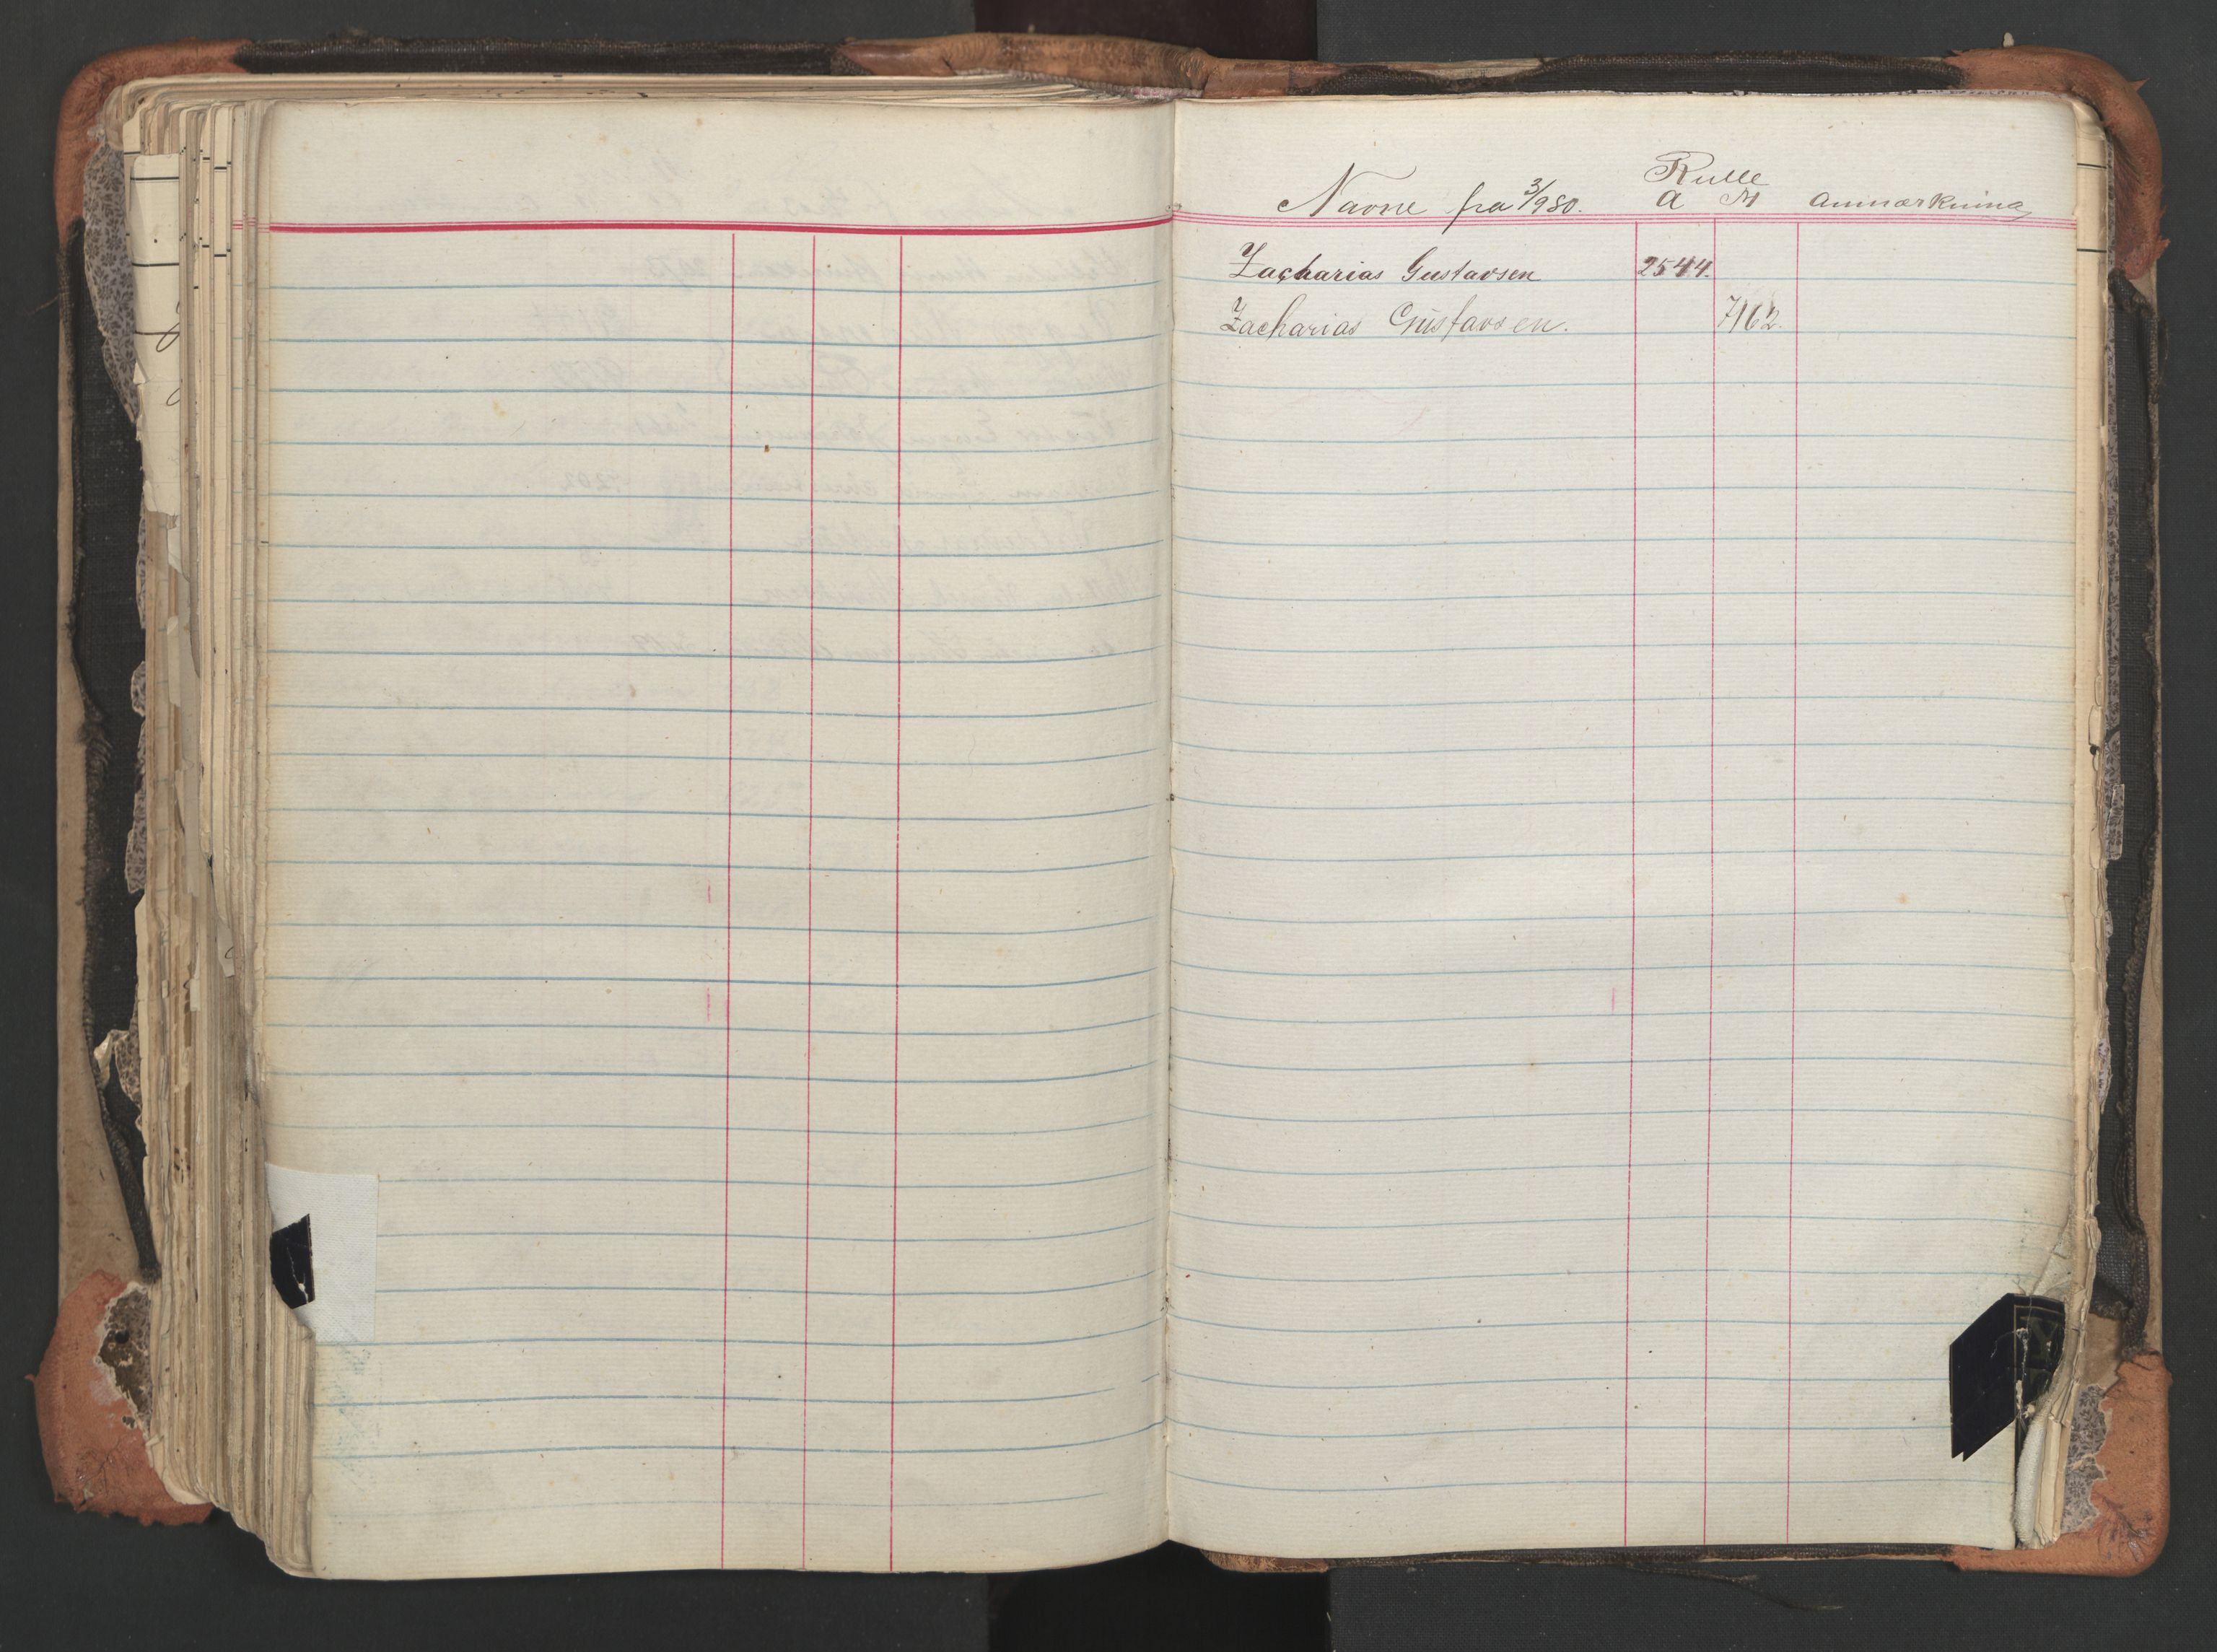 Navne fra 3/9 80. Rulle A H Anmærkning
Zacharias Gustavsen 2544.
Zacharias Gustavsen. 7162.